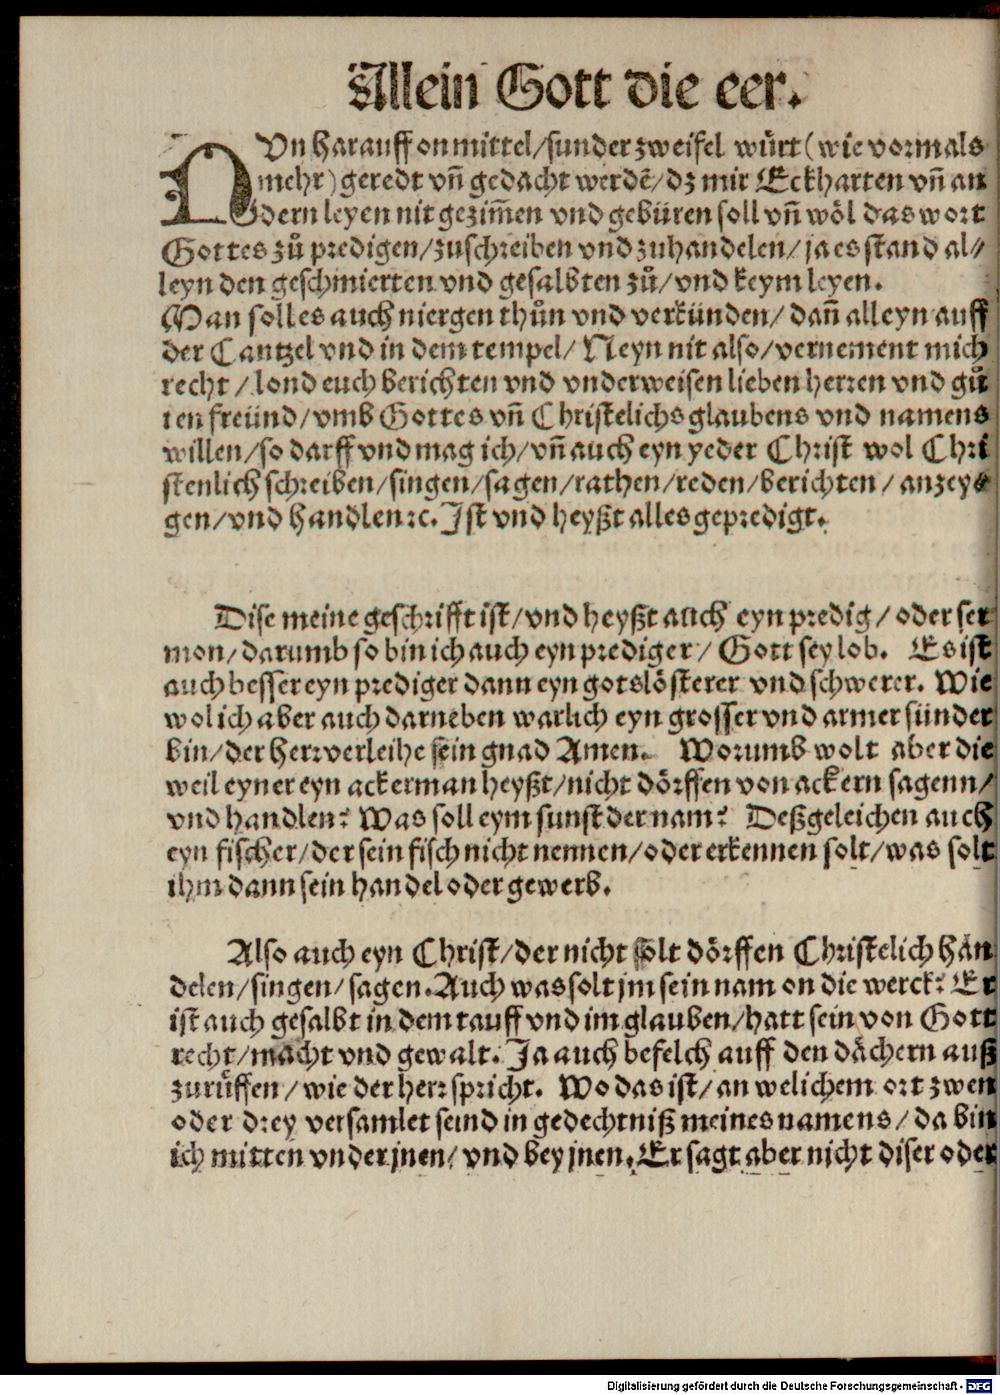 Allein Gott die eer.
NVn harauff on mittel/sunder zweifel würt (wie vormals
mehr) geredt vn̄ gedacht werdē/dz mir Eckharten vn̄ an
dern leyen nit gezim̄en vnd gebüren soll vn̄ wöl das wort
Gottes zů predigen/zuschreiben vnd zuhandelen/ ja es stand al⸗
leyn den geschmierten vnd gesalbten zů/vnd keym leyen.
Man soll es auch niergen thůn vnd verkünden/ dan̄ alleyn auff
der Cantzel vnd in dem tempel/ Neyn nit also/vernement mich
recht/lond euch berichten vnd vnderweisen lieben herren vnd gů
ten freünd/vmb Gottes vn̄ Christelichs glaubens vnd namens
willen/so darff vnd mag ich/vn̄ auch eyn yeder Christ wol Chri
stenlich schreiben/singen/sagen/rathen/reden/berichten/ anzey⸗
gen/vnd handlen ꝛc. Jst vnd heyßt alles gepredigt.
Dise meine geschrifft ist/vnd heyßt auch eyn predig/ oder ser
mon/darumb so bin ich auch eyn prediger/ Gott sey lob. Es ist
auch besser eyn prediger dann eyn gotslösterer vnd schwerer. Wie
wol ich aber auch darneben warlich eyn grosser vnd armer sünder
bin/der herr verleihe sein gnad Amen. Worumb wolt aber die
weil eyner eyn ackerman heyßt/nicht dörffen von ackern sagenn/
vnd handlen? Was soll eym sunst der nam? Deßgeleichen auch
eyn fischer/der sein fisch nicht nennen/oder erkennen solt/was solt
ihm dann sein handel oder gewerb.
Also auch eyn Christ/der nicht solt dörffen Christelich hān
delen/singen/sagen. Auch was solt jm sein nam on die werck? Er
ist auch gesalbt in dem tauff vnd im glauben/hatt sein von Gott
recht/macht vnd gewalt. Ja auch befelch auff den dächern auß
zurůffen/wie der herr spricht. Wo das ist/an welichem ort zwen
oder drey versamlet seind in gedechtniß meines namens/da bin
ich mitten vnder jnen/ vnd bey jnen. Er sagt aber nicht diser oder
Digitalisierung gefördert durch die Deutsche Forschungsgemeinschaft - DFG